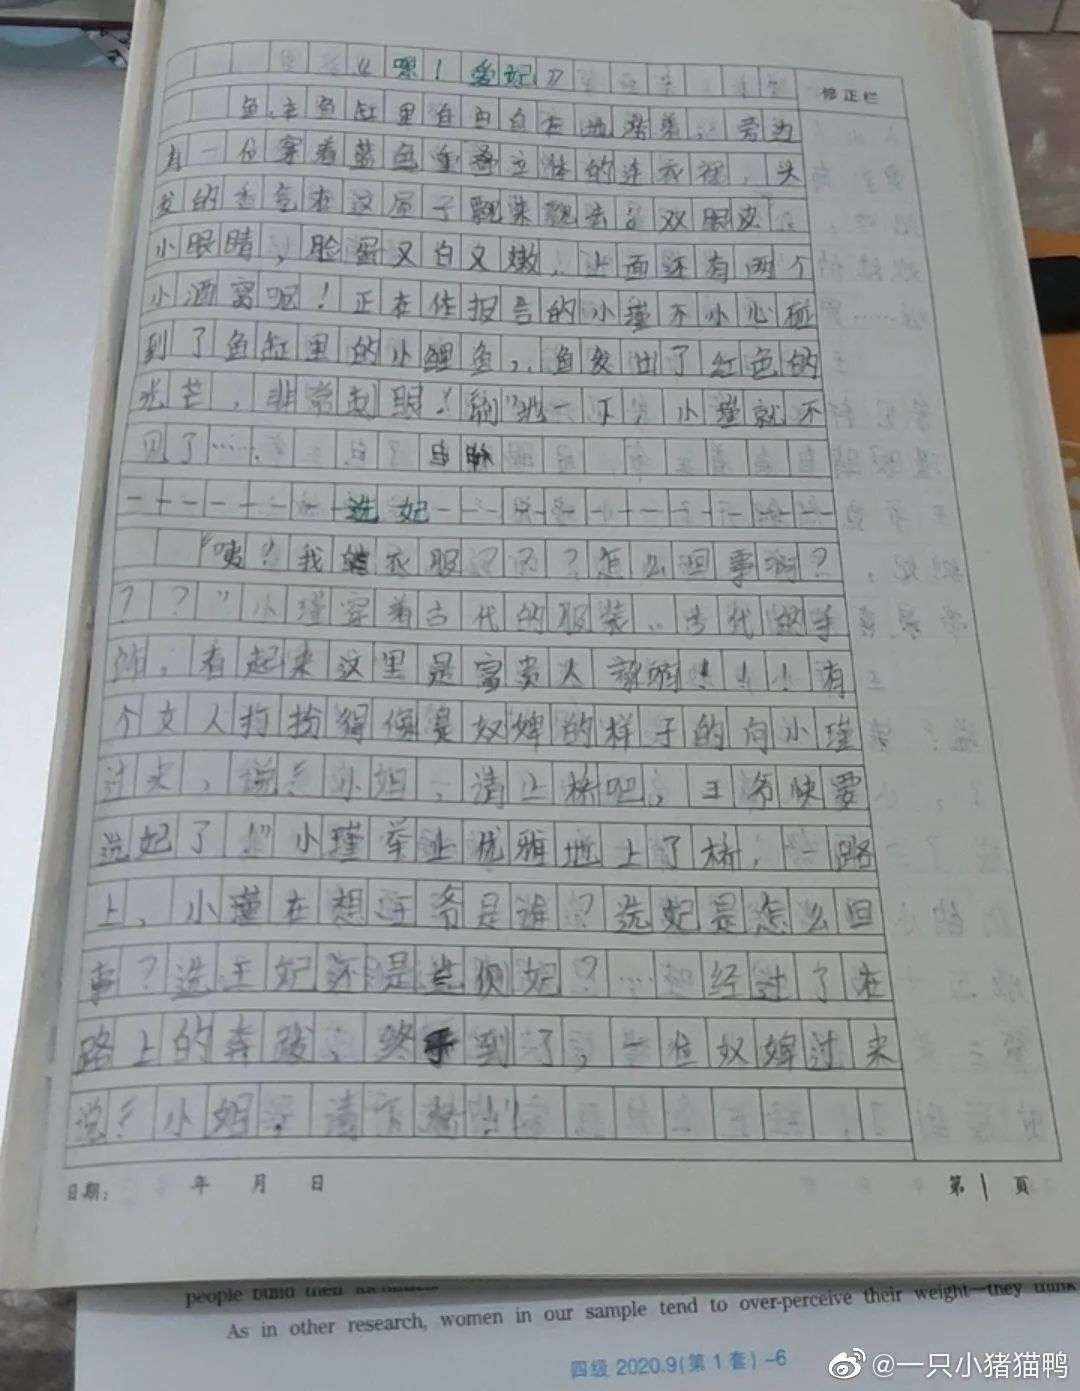 《嘿！爱妃》
修正栏
鱼,在鱼缸里自由自在地游着，旁边
有一位穿着蓝色重叠立体的连衣裙，头
发的香气在这屋子飘来飘去。双眼皮
小眼睛，脸蛋又白又嫩，上面还有两个
小酒窝呢！正在作报告的小瑾不小心碰
到了鱼缸里的小鲤鱼，鱼发出了红色的
光芒，非常刺眼！“一下”小瑾就不
见了……
选妃
“咦？我的衣服呢？怎么回事啊？
？？”小瑾穿着古代的服装，古代的手
饰，看起来这里是富贵人家啊！！！有
个女人打扮得像是奴婢的样子的向小瑾
过来，说：小姐，请上桥吧，王爷快要
选妃了！”小瑾举止优雅地上了桥，一路
上，小瑾在想王爷是谁？选妃是怎么回
事？选王妃还是选侧妃？…经过了在
路上的奔波，终于到了，一位奴婢过来
说：小姐，请下桥！”
日期： 年 月 日
第1页
As in other research, women in our sample tend to over-perceive their weight—they think
四级 2020.9(第1套)-6
@一只小猪猫鸭